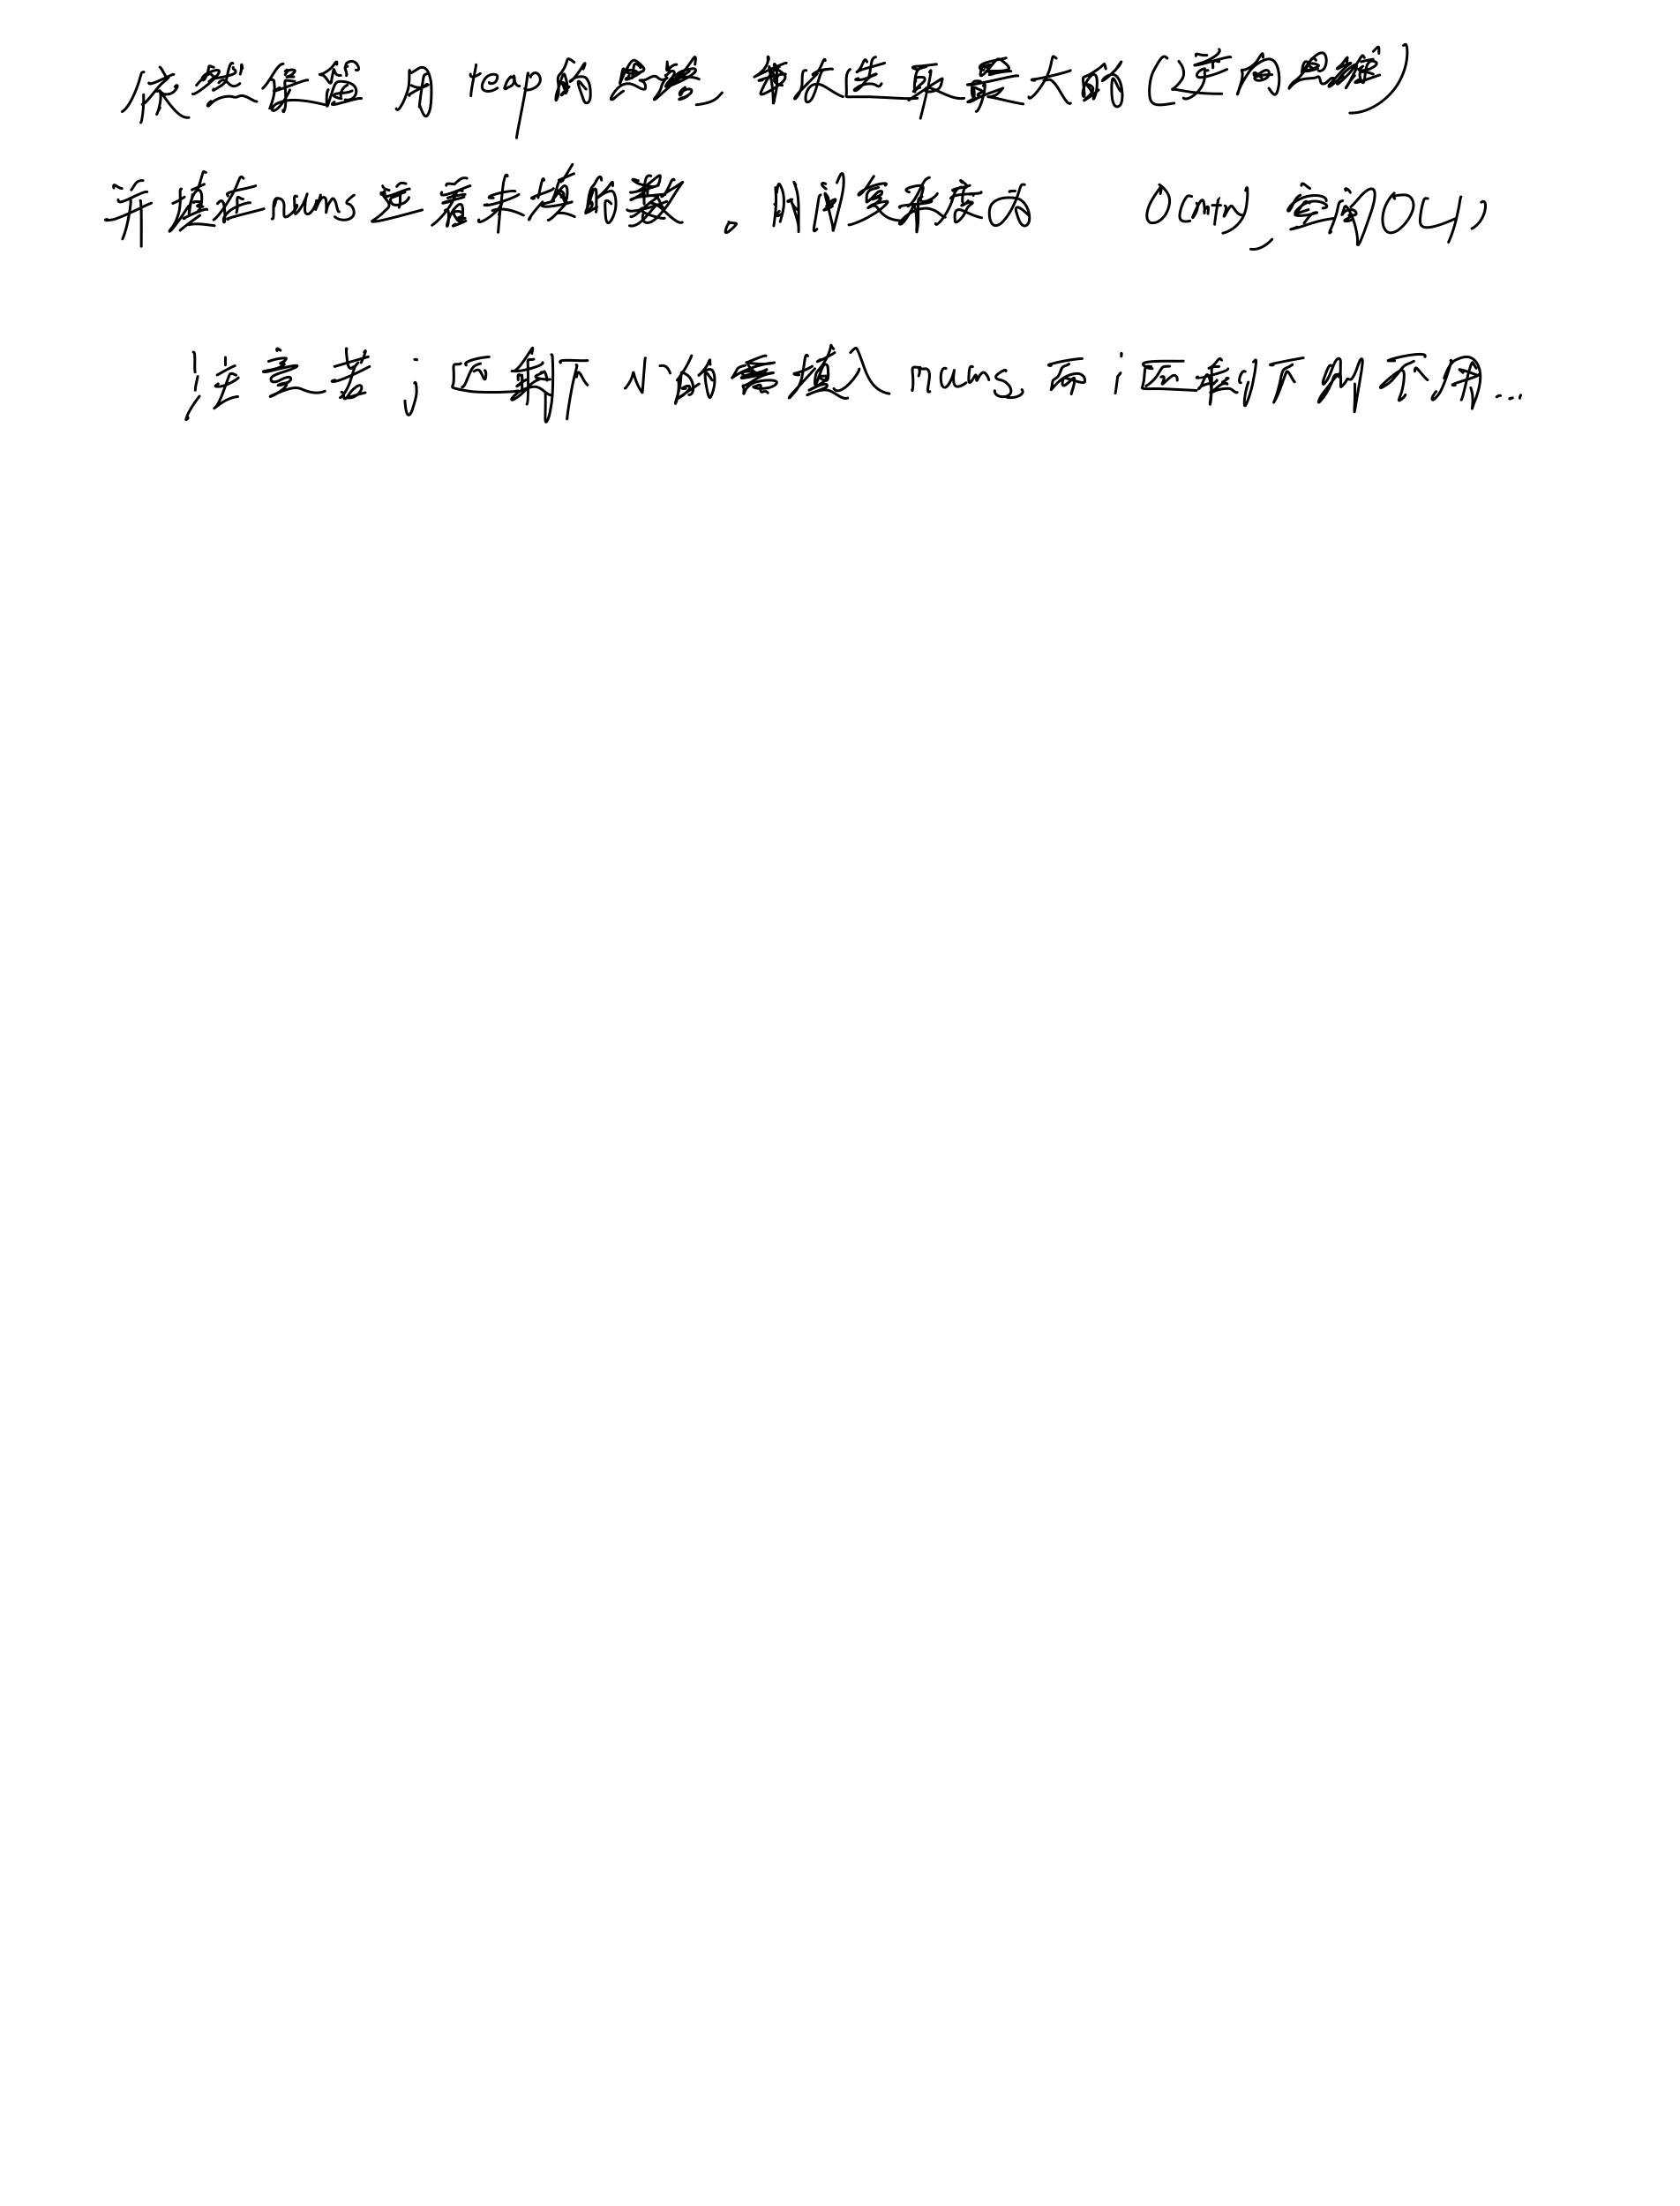 依然保留 用 loop的思路, 每次选取最大的(逆向思维)
并填在nums里着未填的数. 时间复杂度为 O(m+n), 空间O(1)
注意若j还剩下 小的需填入 nums, 而i还剩下的不用...